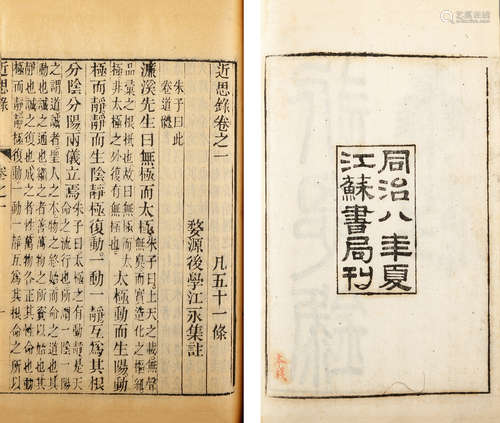 同治八年夏
江蘇書局刊
近思錄卷之一
凡五十一條
婺源後學江永集註
朱子曰此
卷道體
濂溪先生曰無極而太極
朱子曰上天之載無聲
無臭而實造化之樞紐
品彙之根柢也故曰無極而太
極非太極之外復有無極也
太極動而生陽動
極而靜靜而生陰靜極復動一動一靜互爲其根
分陰分陽兩儀立焉
朱子曰太極之有動靜是天
命之流行也所謂一陰一陽
之謂道誠者聖人之本物之終始而命之道也其
動也誠之通也繼之者善萬物之所資以始也其
靜也誠之復也成之者性萬物各正其性命也動
極而靜靜極復動一動一靜互爲其根命之所以
近思錄
卷之一